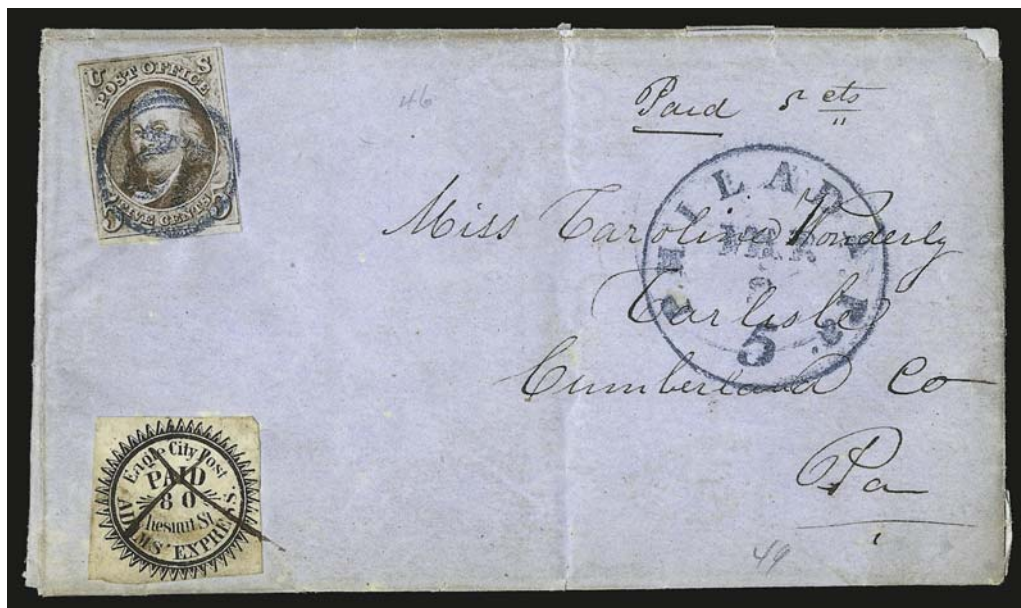 U S
POST OFFICE
5 FIVE CENTS 5
46
Paid 5 cts
PHILADELPHIA Pa.
MAR
5
Miss Caroline Wonderly
Carlisle
Cumberland Co
Pa
49
Eagle City Post
PAID
80
Chesnut St
ADAMS' EXPRESS